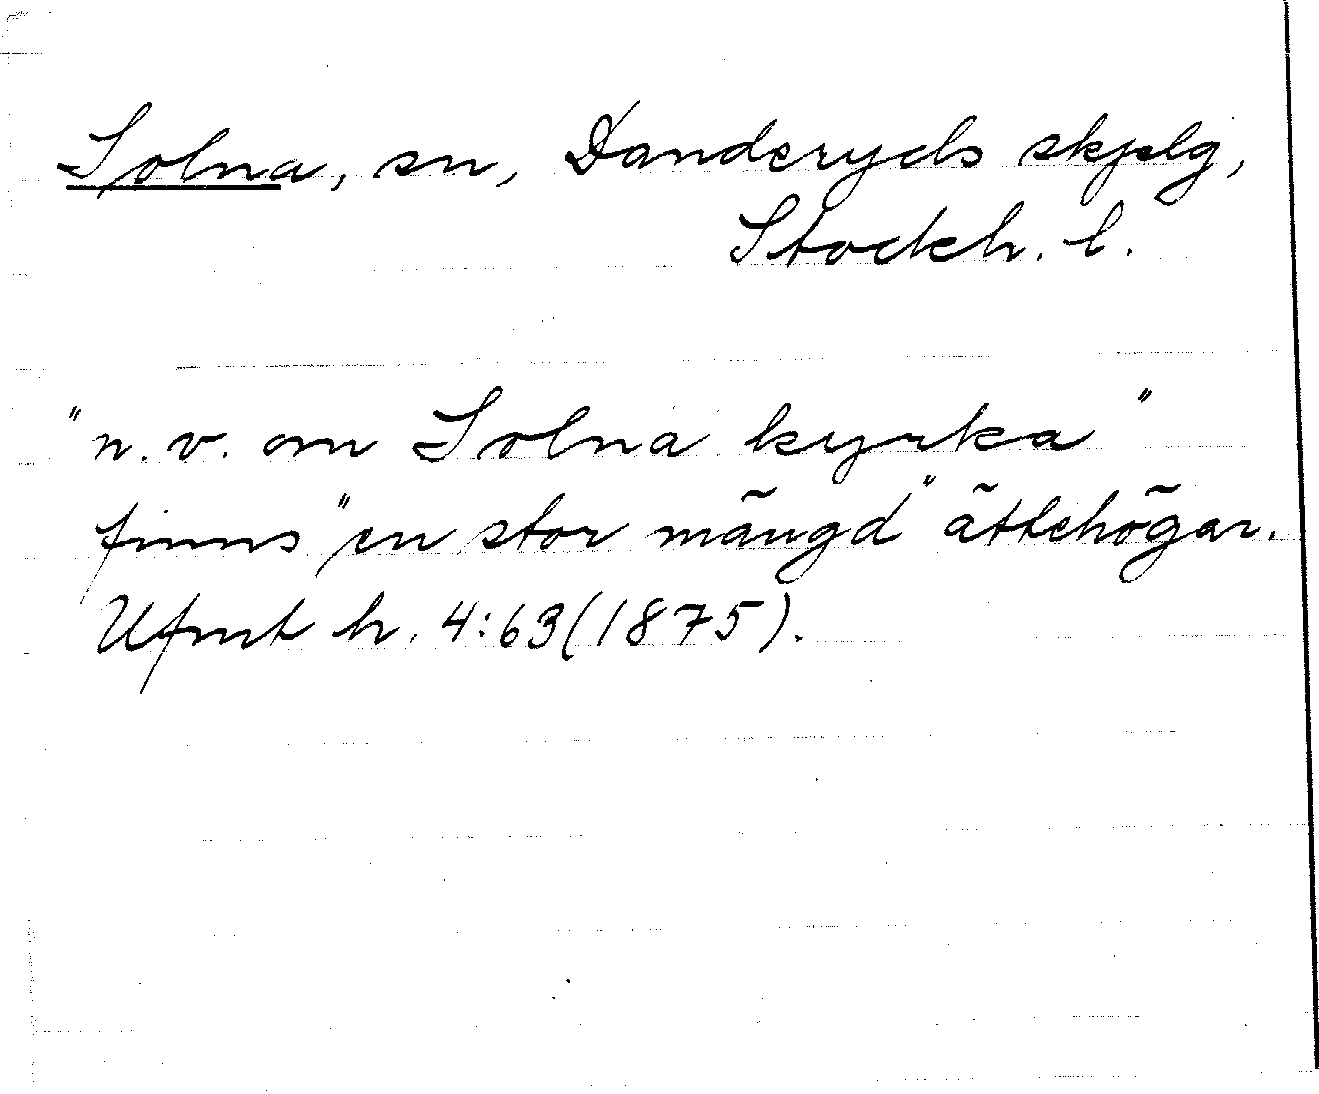 Solna, sn, Danderyds skjelg,
Stockh. l.
"n. v. om Solna kyrka"
finns "en stor mängd" ättehögar.
Ufmt h. 4:63 (1875).